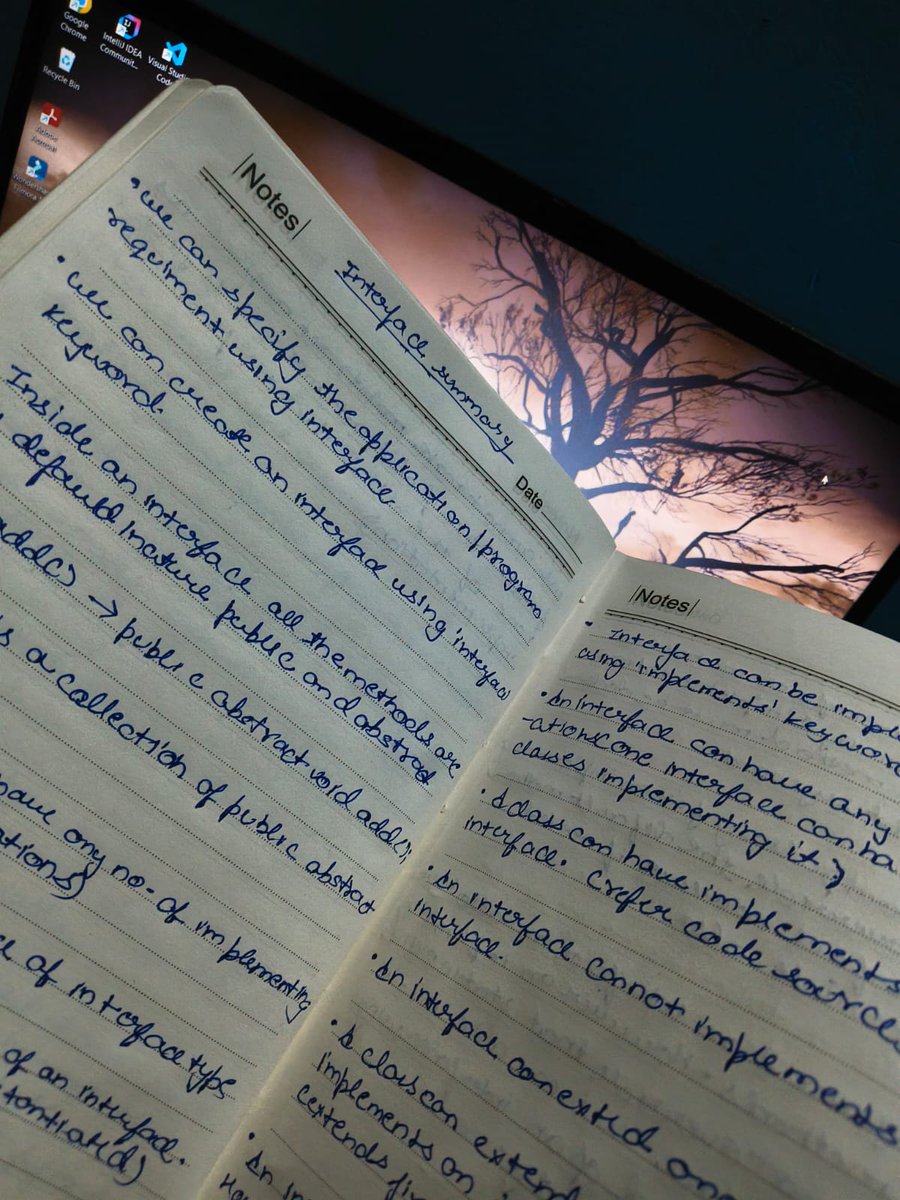 Google
Chrome
IntelliJ IDEA
Communit...
Visual Studi
Code
Recycle Bin
Adobe
Acrobat
Notes
Interface summary
Date
• We can specify the application/program
requiment using interface
• We can create an interface using 'interface'
keyword.
Inside an interface all the methods are
default inature public and abstract
add() → public abstract void add();
a collection of public abstract
have any no. of implementing
ations)
of interface type
of an interface.
Notes
• Interface can be imple
using 'implements' keyword
• An interface can have any
-ations(one interface can ha
classes implementing it)
• A class can have implements
interface. (refer code source
• An interface cannot implements
interface.
• An interface can extend on
• A class can extend
implements an
(extends fir
• An in